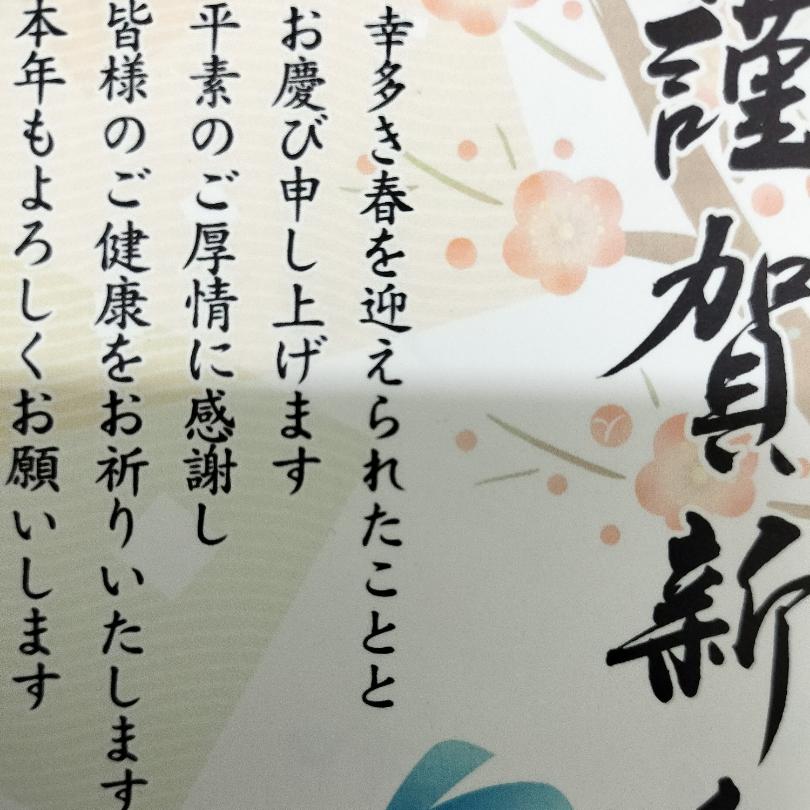 謹賀新
幸多き春を迎えられたことと
お慶び申し上げます
平素のご厚情に感謝し
皆様のご健康をお祈りいたします
本年もよろしくお願いします